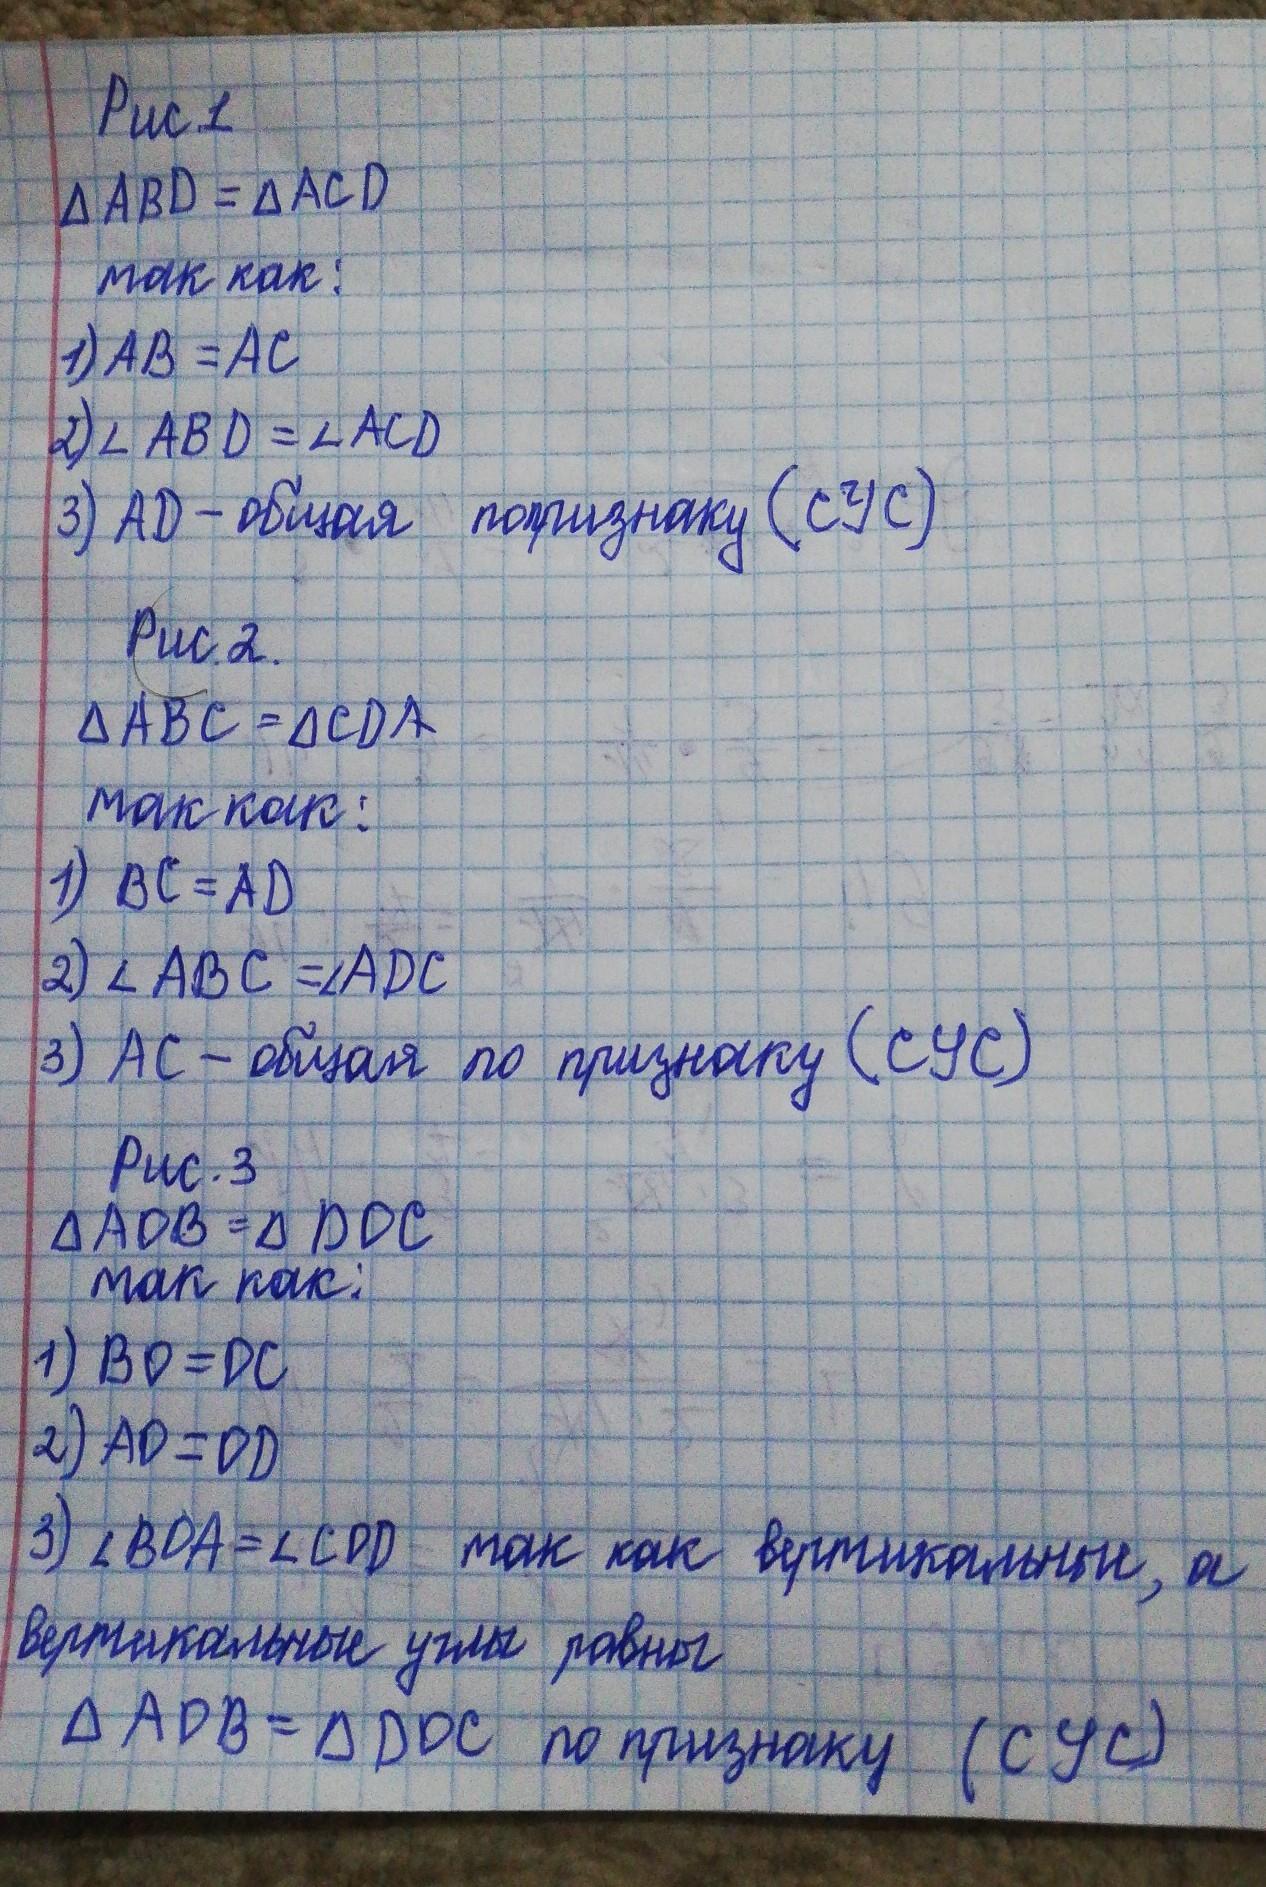 Рис.1
△ABD = △ACD
так как:
1) AB = AC
2) ∠ABD = ∠ACD
3) AD – общая по признаку (СУС)
Рис.2.
△ABC = △CDA
так как:
1) BC = AD
2) ∠ABC = ∠ADC
3) AC – общая по признаку (СУС)
Рис.3
△AOB = △DOC
так как:
1) BO = OC
2) AO = OD
3) ∠BOA = ∠COD так как вертикальные, а
вертикальные углы равны
△AOB = △DOC по признаку (СУС)